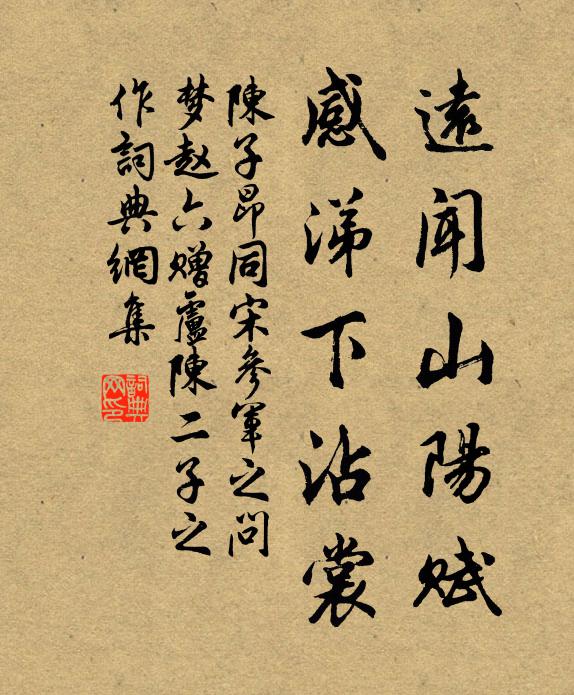 遠聞山陽賦
感涕下沾裳
陳子昂同宋參軍之問
梦赵六赠盧陳二子之
作詞典網集
詞典
网印